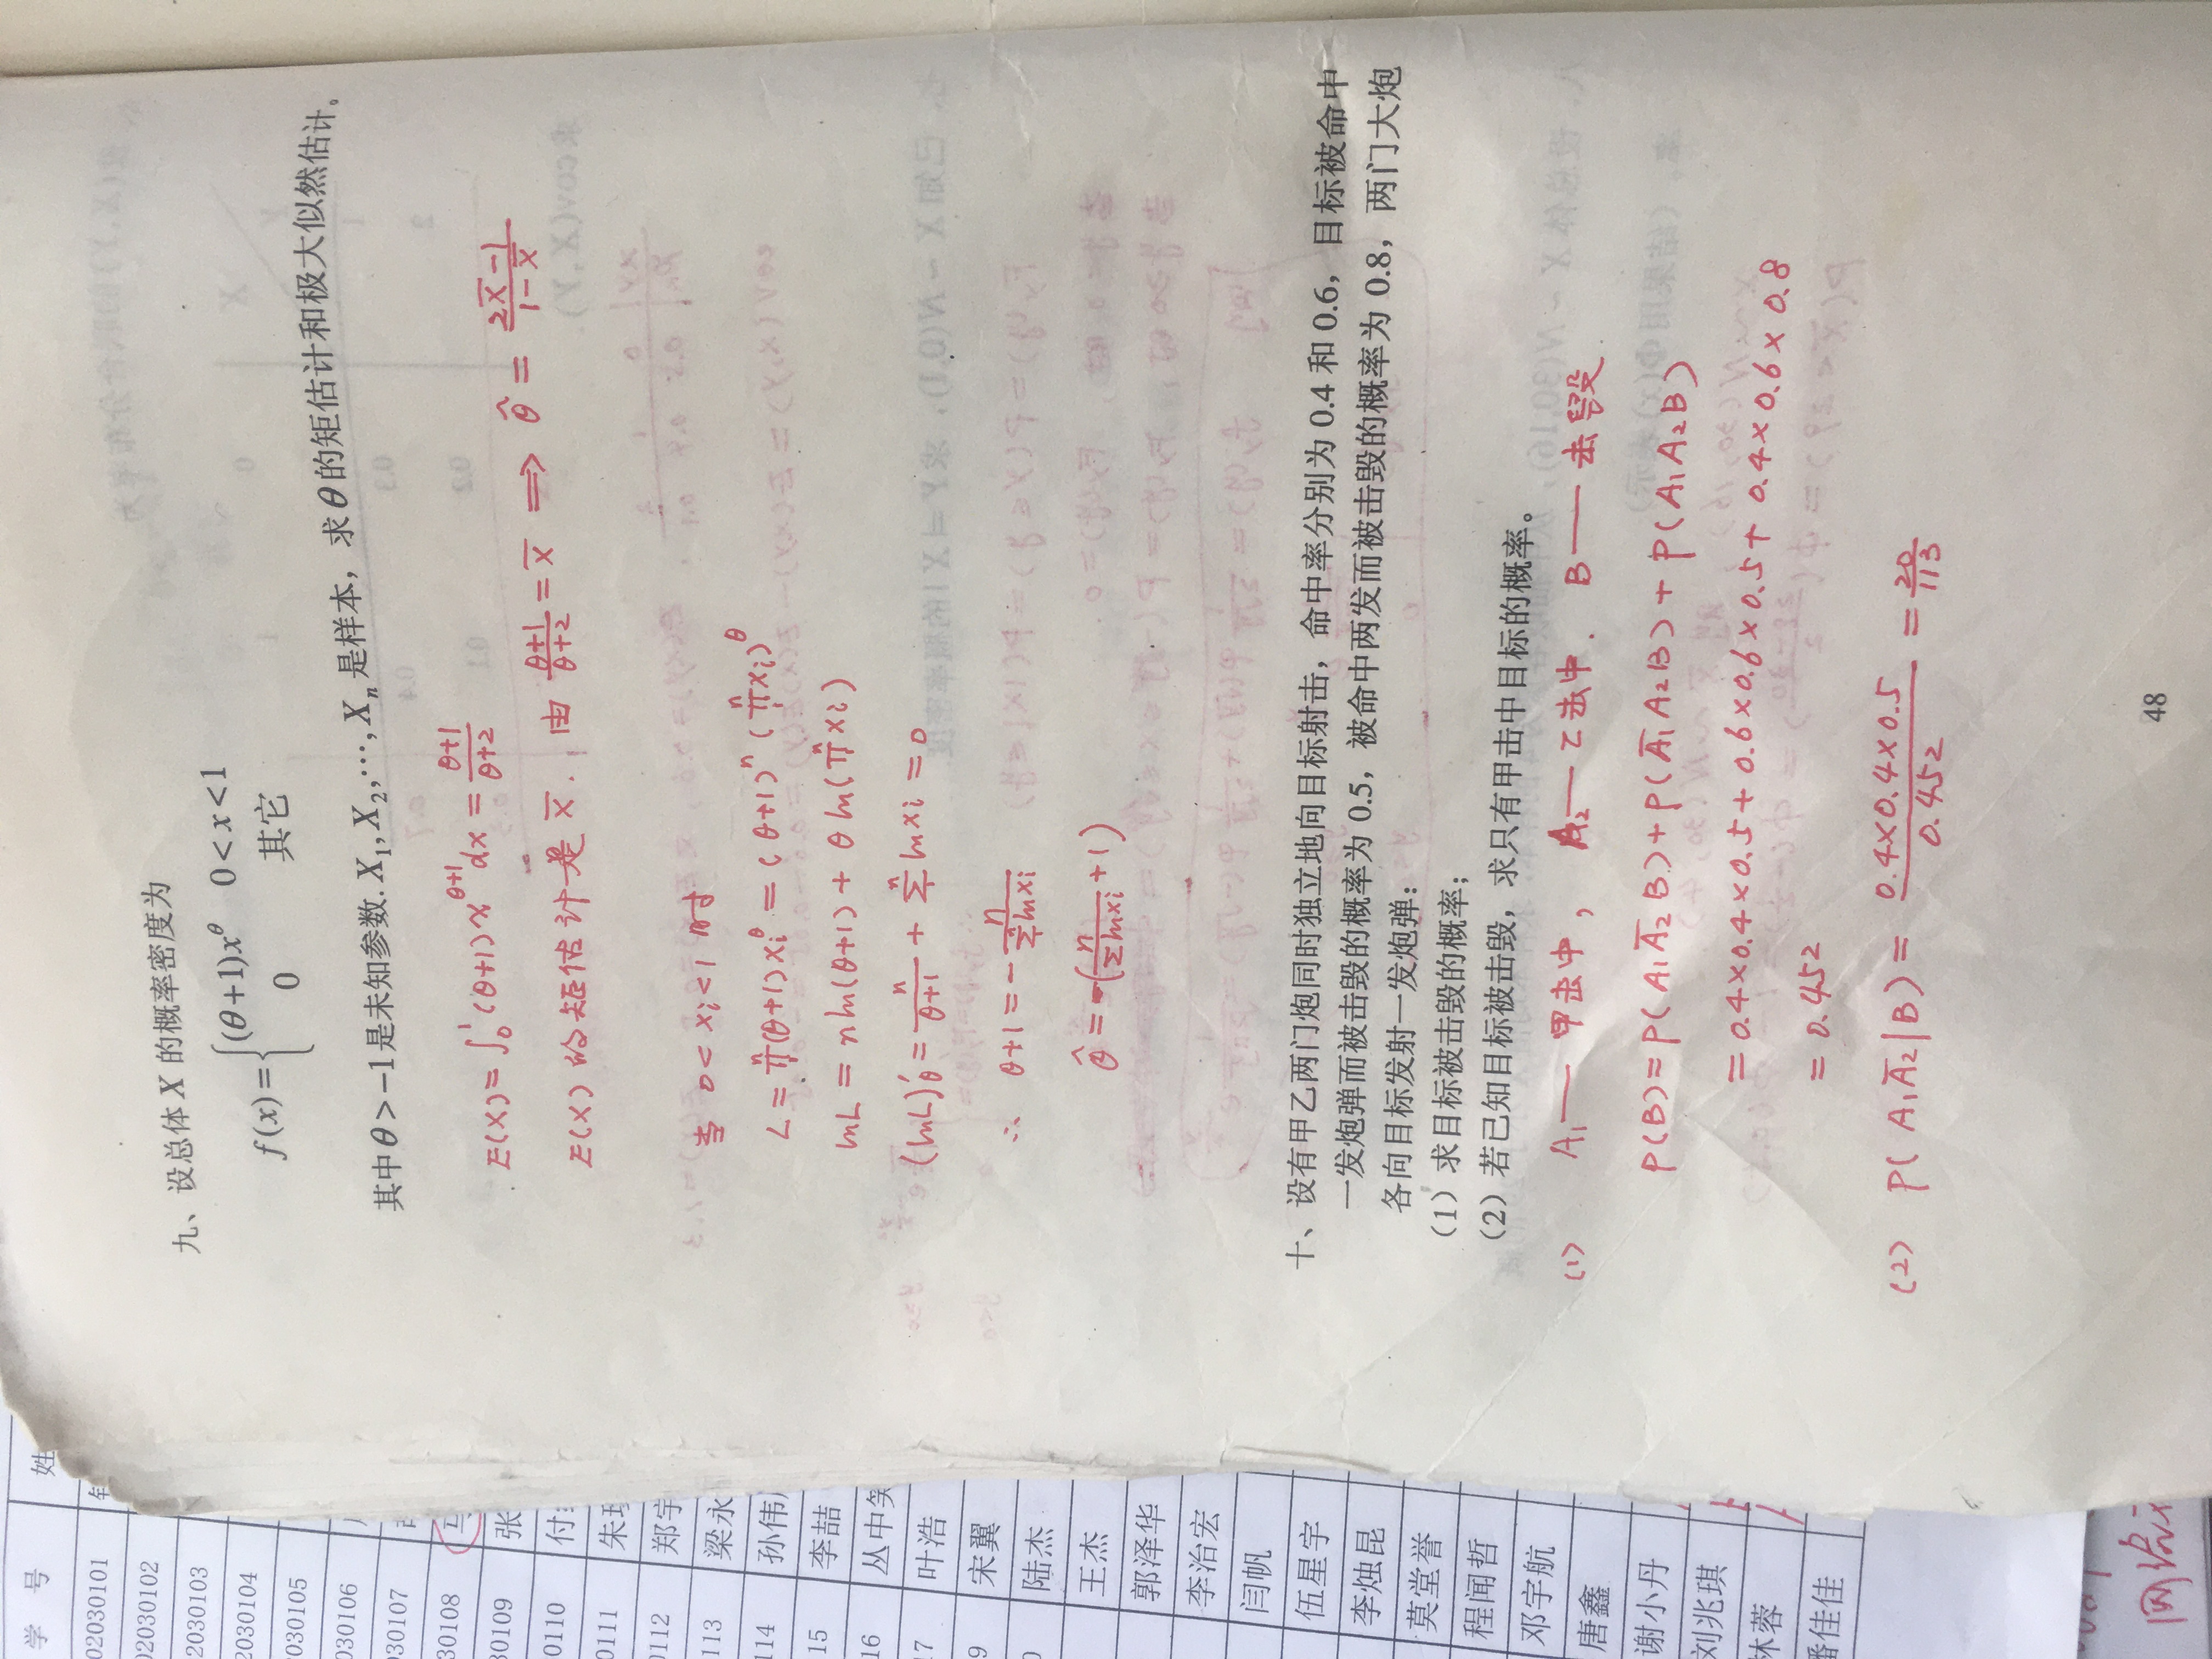 学 号 姓
02030101
02030102
2030103
2030104
030105
030106
030107
30108 马
30109 张
0110 付
0111 朱
0112 郑宇
113 梁永
114 孙伟
15 李喆
16 丛中笑
17 叶浩
9 宋翼
0 陆杰
王杰
郭泽华
李治宏
闫帆
伍星宇
李烛昆
莫堂誉
程闻哲
邓宇航
唐鑫
谢小丹
刘兆琪
林蓉
潘佳佳
九、设总体 X 的概率密度为
f(x)={(θ+1)x^θ 0<x<1
0 其它
其中θ>-1是未知参数. X₁,X₂,…,Xₙ 是样本，求θ的矩估计和极大似然估计。
E(X)=∫₀¹(θ+1)x^{θ+1}dx=\frac{θ+1}{θ+2}
E(X) 的矩估计是 X̄. 由 \frac{θ+1}{θ+2}=X̄ ⟹ θ̂=\frac{2X̄-1}{1-X̄}
当 0<xᵢ<1 时
L=∏₁ⁿ(θ+1)xᵢ^θ=(θ+1)ⁿ(∏₁ⁿxᵢ)^θ
lnL=nln(θ+1)+θln(∏₁ⁿxᵢ)
(lnL)'_θ=\frac{n}{θ+1}+∑₁ⁿlnxᵢ=0
∴ θ+1=-\frac{n}{∑₁ⁿlnxᵢ}
θ̂=-(\frac{n}{∑lnxᵢ}+1)
十、设有甲乙两门炮同时独立地向目标射击，命中率分别为 0.4 和 0.6，目标被命中
一发炮弹而被击毁的概率为 0.5，被命中两发而被击毁的概率为 0.8，两门大炮
各向目标发射一发炮弹：
（1）求目标被击毁的概率；
（2）若已知目标被击毁，求只有甲击中目标的概率。
(1) A₁—甲击中， A₂—乙击中. B—击毁.
P(B)=P(A₁Ā₂B)+P(Ā₁A₂B)+P(A₁A₂B)
=0.4×0.4×0.5+0.6×0.6×0.5+0.4×0.6×0.8
=0.452
(2) P(A₁Ā₂|B)=\frac{0.4×0.4×0.5}{0.452}=\frac{20}{113}
48